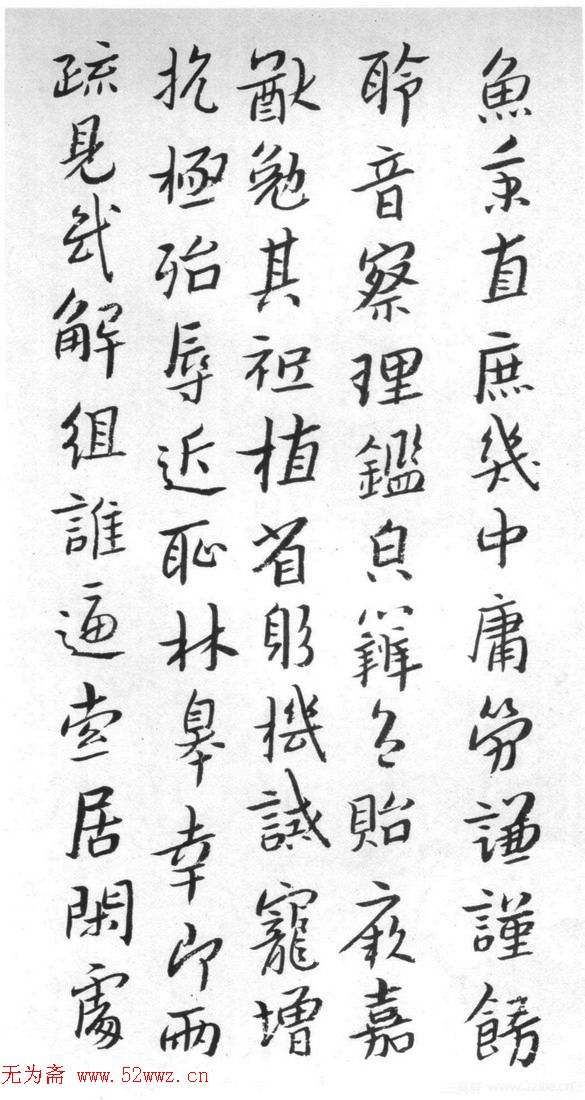 魚秉直庶幾中庸勞謙謹飭
聆音察理鑑皃辯色貽厥嘉
猷勉其祗植省躬機誡寵增
抗極殆辱近恥林皋幸即兩
疏見機解組誰逼索居閑處
无为斋 www.52wwz.cn